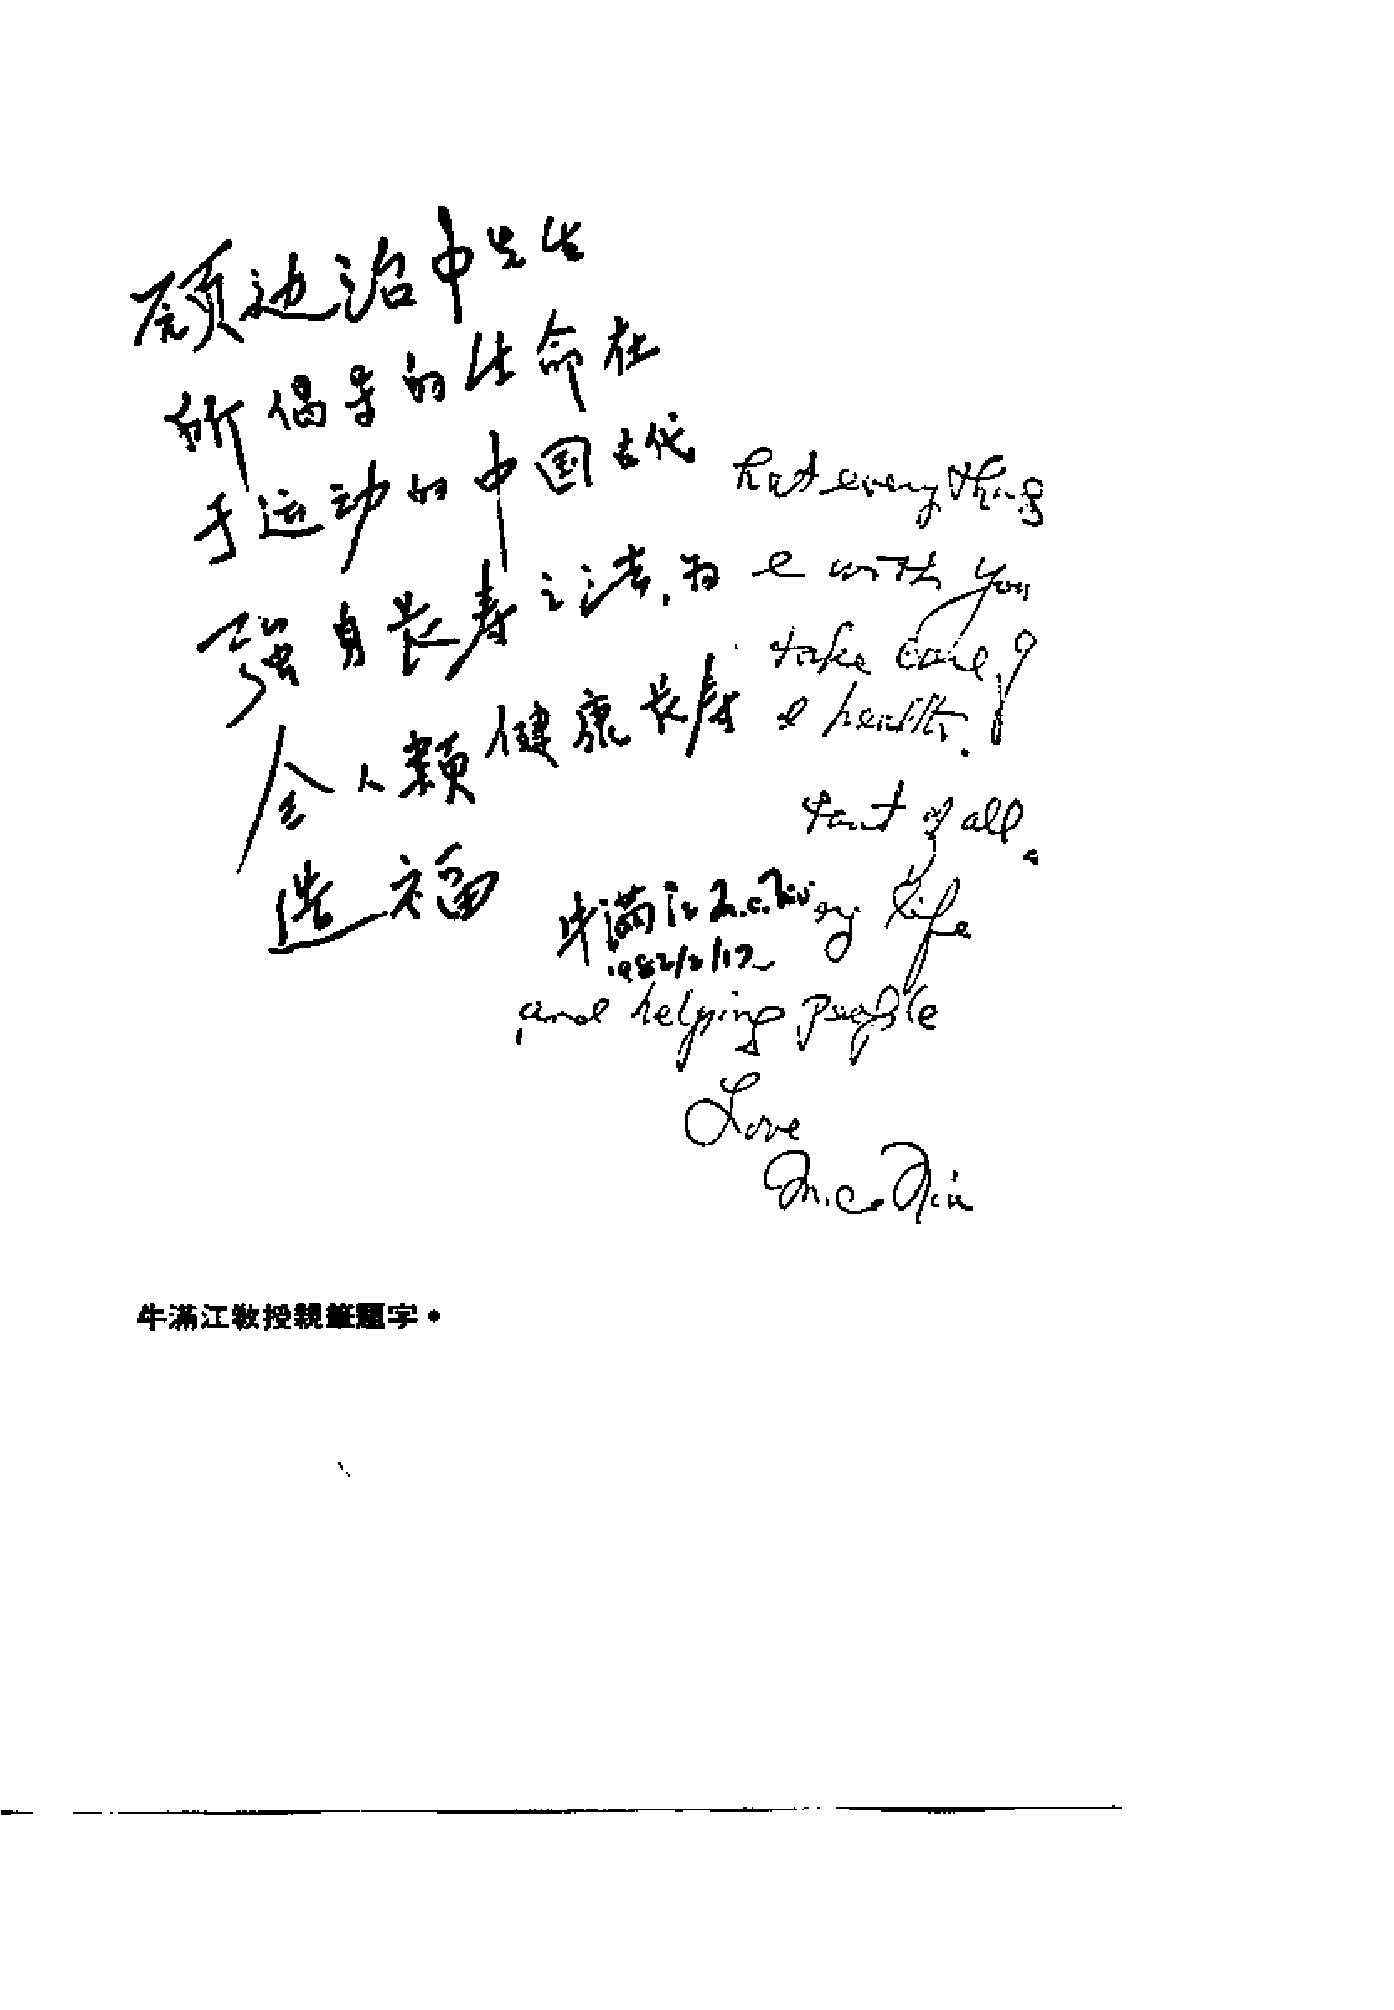 愿边治中先生
所倡导的生命在
于运动的中国古代
强身长寿之法,为
全人类健康长寿
造福
牛满江 M.C. Niu
1982/2/17
hat everything
e with you
take care of
e health.
tant of all.
ng life
and helping people
Love
M.C. Niu
牛滿江教授親筆題字。